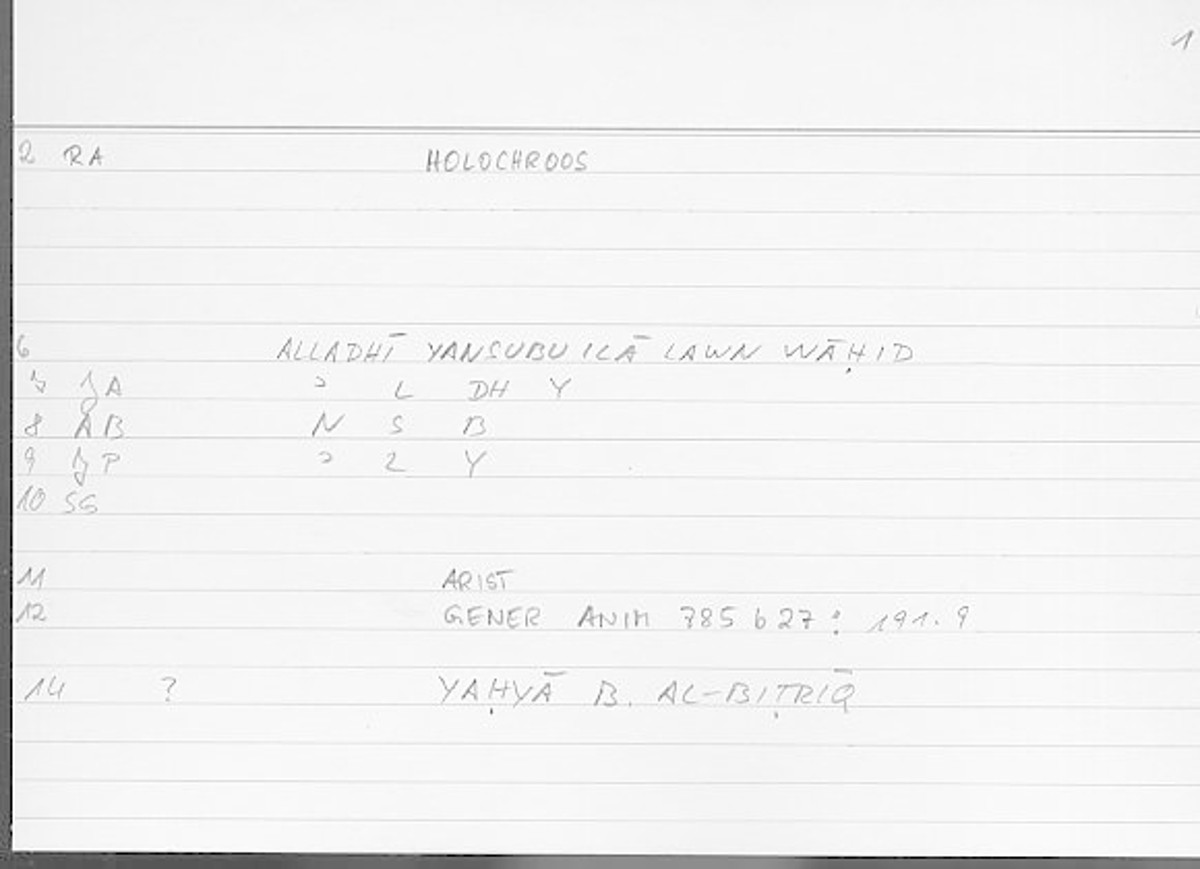 1
2 RA HOLOCHROOS
6 ALLADHĪ YANSUBU ILĀ LAWN WĀḤID
7 JA ʾ L DH Y
8 AB N S B
9 JP ʾ L Y
10 SG
11 ARIST
12 GENER ANIM 785 b 27 : 191.9
14 ? YAḤYĀ B. AL-BIṬRĪQ